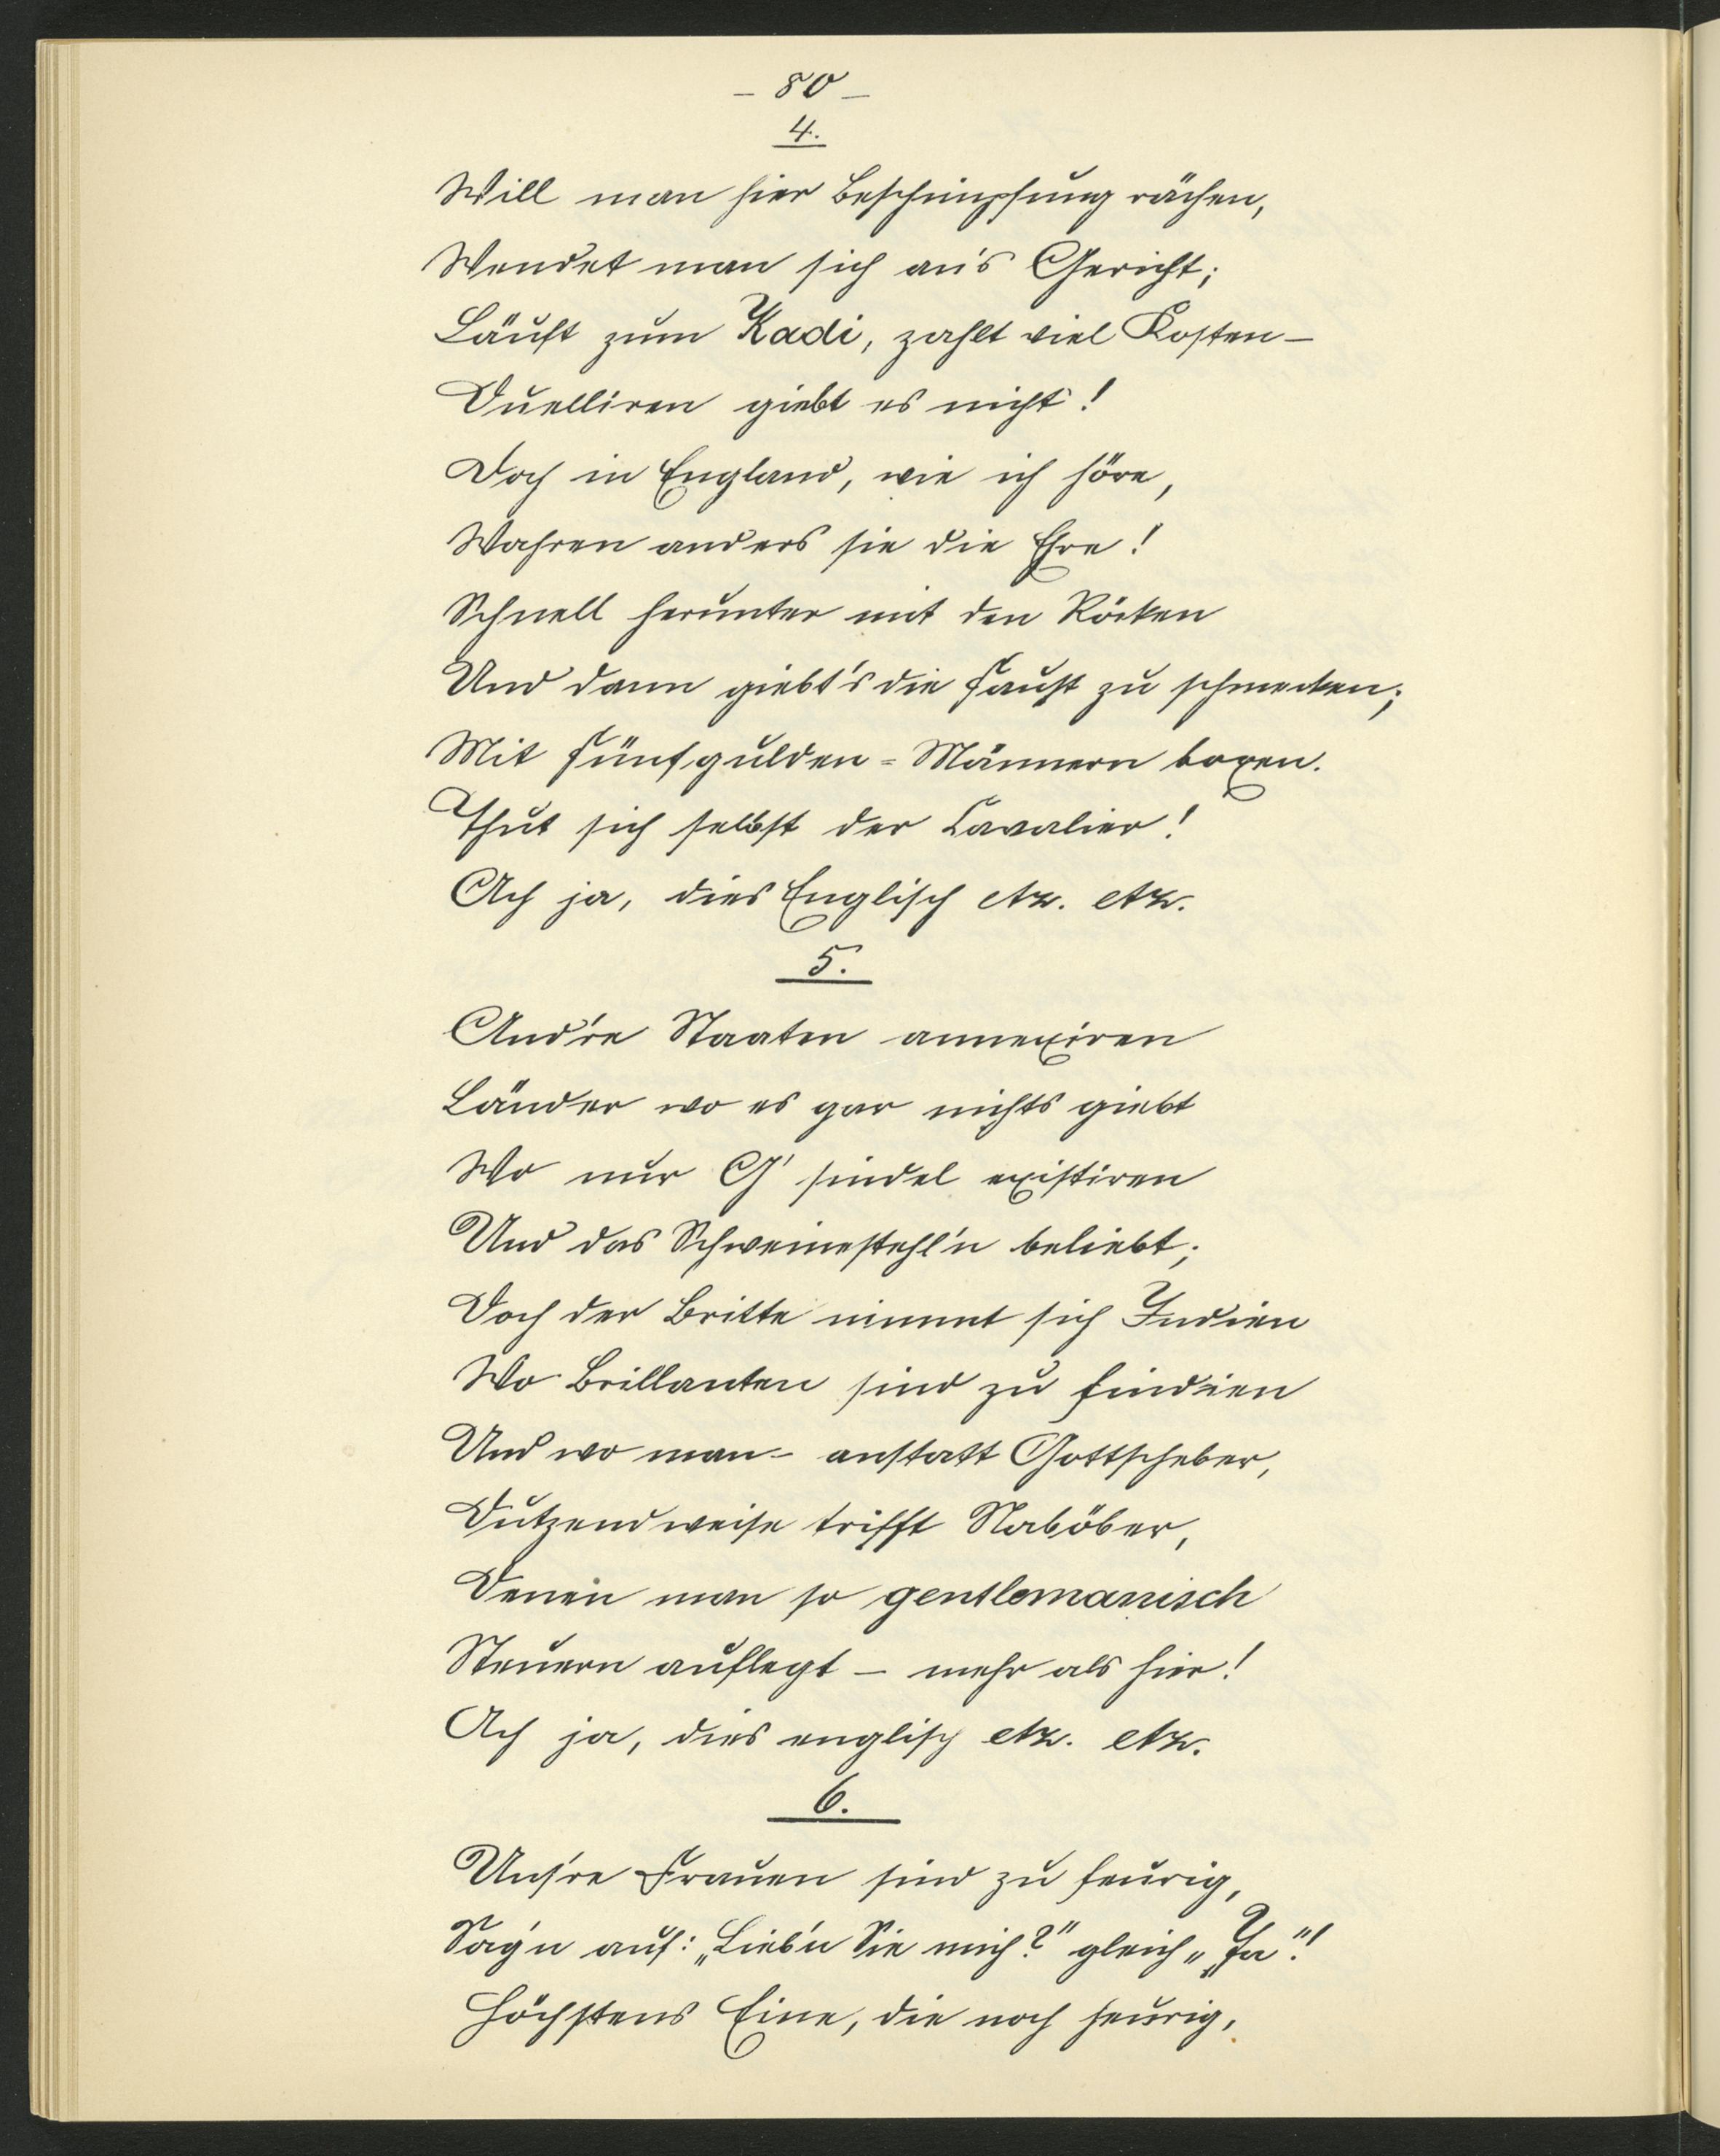 – 80 –
4.
Will man hier Beschimpfung rächen,
Wendet man sich an's Gericht;
Läuft zum Kadi, zahlt viel Kosten –
Duelliren giebt es nicht!
Doch in England, wie ich höre,
Wahren anders sie die Ehre!
Schnell herunter mit den Röcken
Und dann giebt's die Faust zu schmecken;
Mit Fünfgulden-Männern boxen.
Thut sich selbst der Cavalier!
Ach ja, dies Englisch etz. etz.
5.
And're Staaten annexiren
Länder wo es gar nichts giebt
Wo nur G'sindel existiren
Und das Schweinestehl'n beliebt;
Doch der Britte nimmt sich Indien
Wo Brillanten sind zu findien
Und wo man – anstatt Gottscheber,
Dutzendweise trifft Naböber,
Denen man so gentlemanisch
Steuern auflegt – mehr als hier!
Ach ja, dies englisch etz. etz.
6.
Uns're Frauen sind zu feurig,
Sag'n auf: „Lieb'n Sie mich?" gleich „Ja"!
Höchstens Eine, die noch heurig,